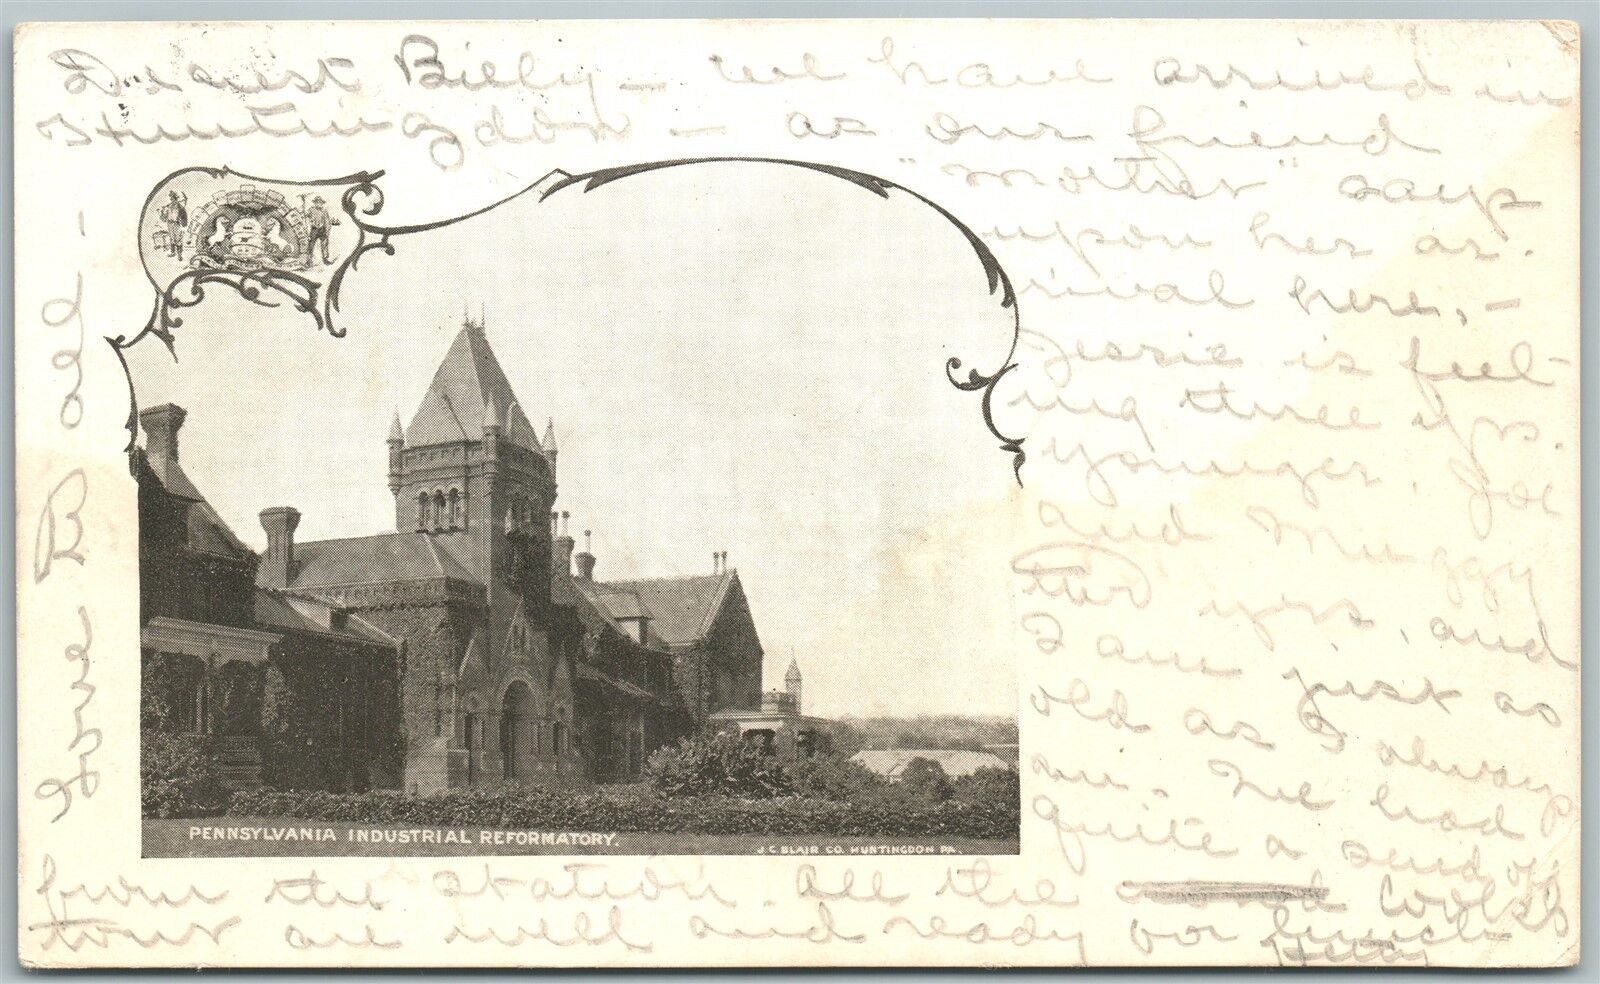 Dearest Billy — we have arrived in
Huntingdon — as our friend
"mother" says
upon her ar-
rival here, —
Jessie is feel-
ing three yrs.
younger, Joe
and Muggy
two yrs, and
I am just as
old as I always
am. We had
quite a send off
from the station. All the Cooks
tour are well and ready for lunch
Hetty
Love to all —
PENNSYLVANIA INDUSTRIAL REFORMATORY.
J.C. BLAIR CO. HUNTINGDON PA.